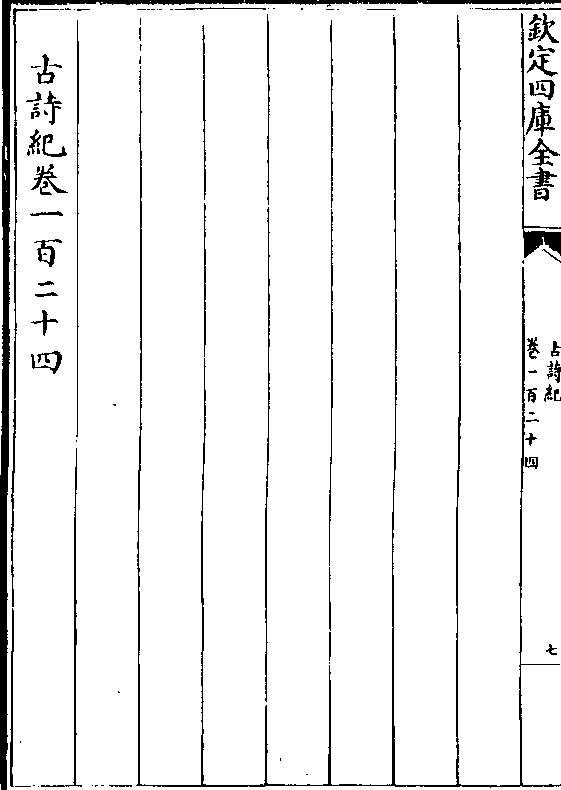 欽定四庫全書
古詩紀
卷一百二十四
七
古詩紀卷一百二十四